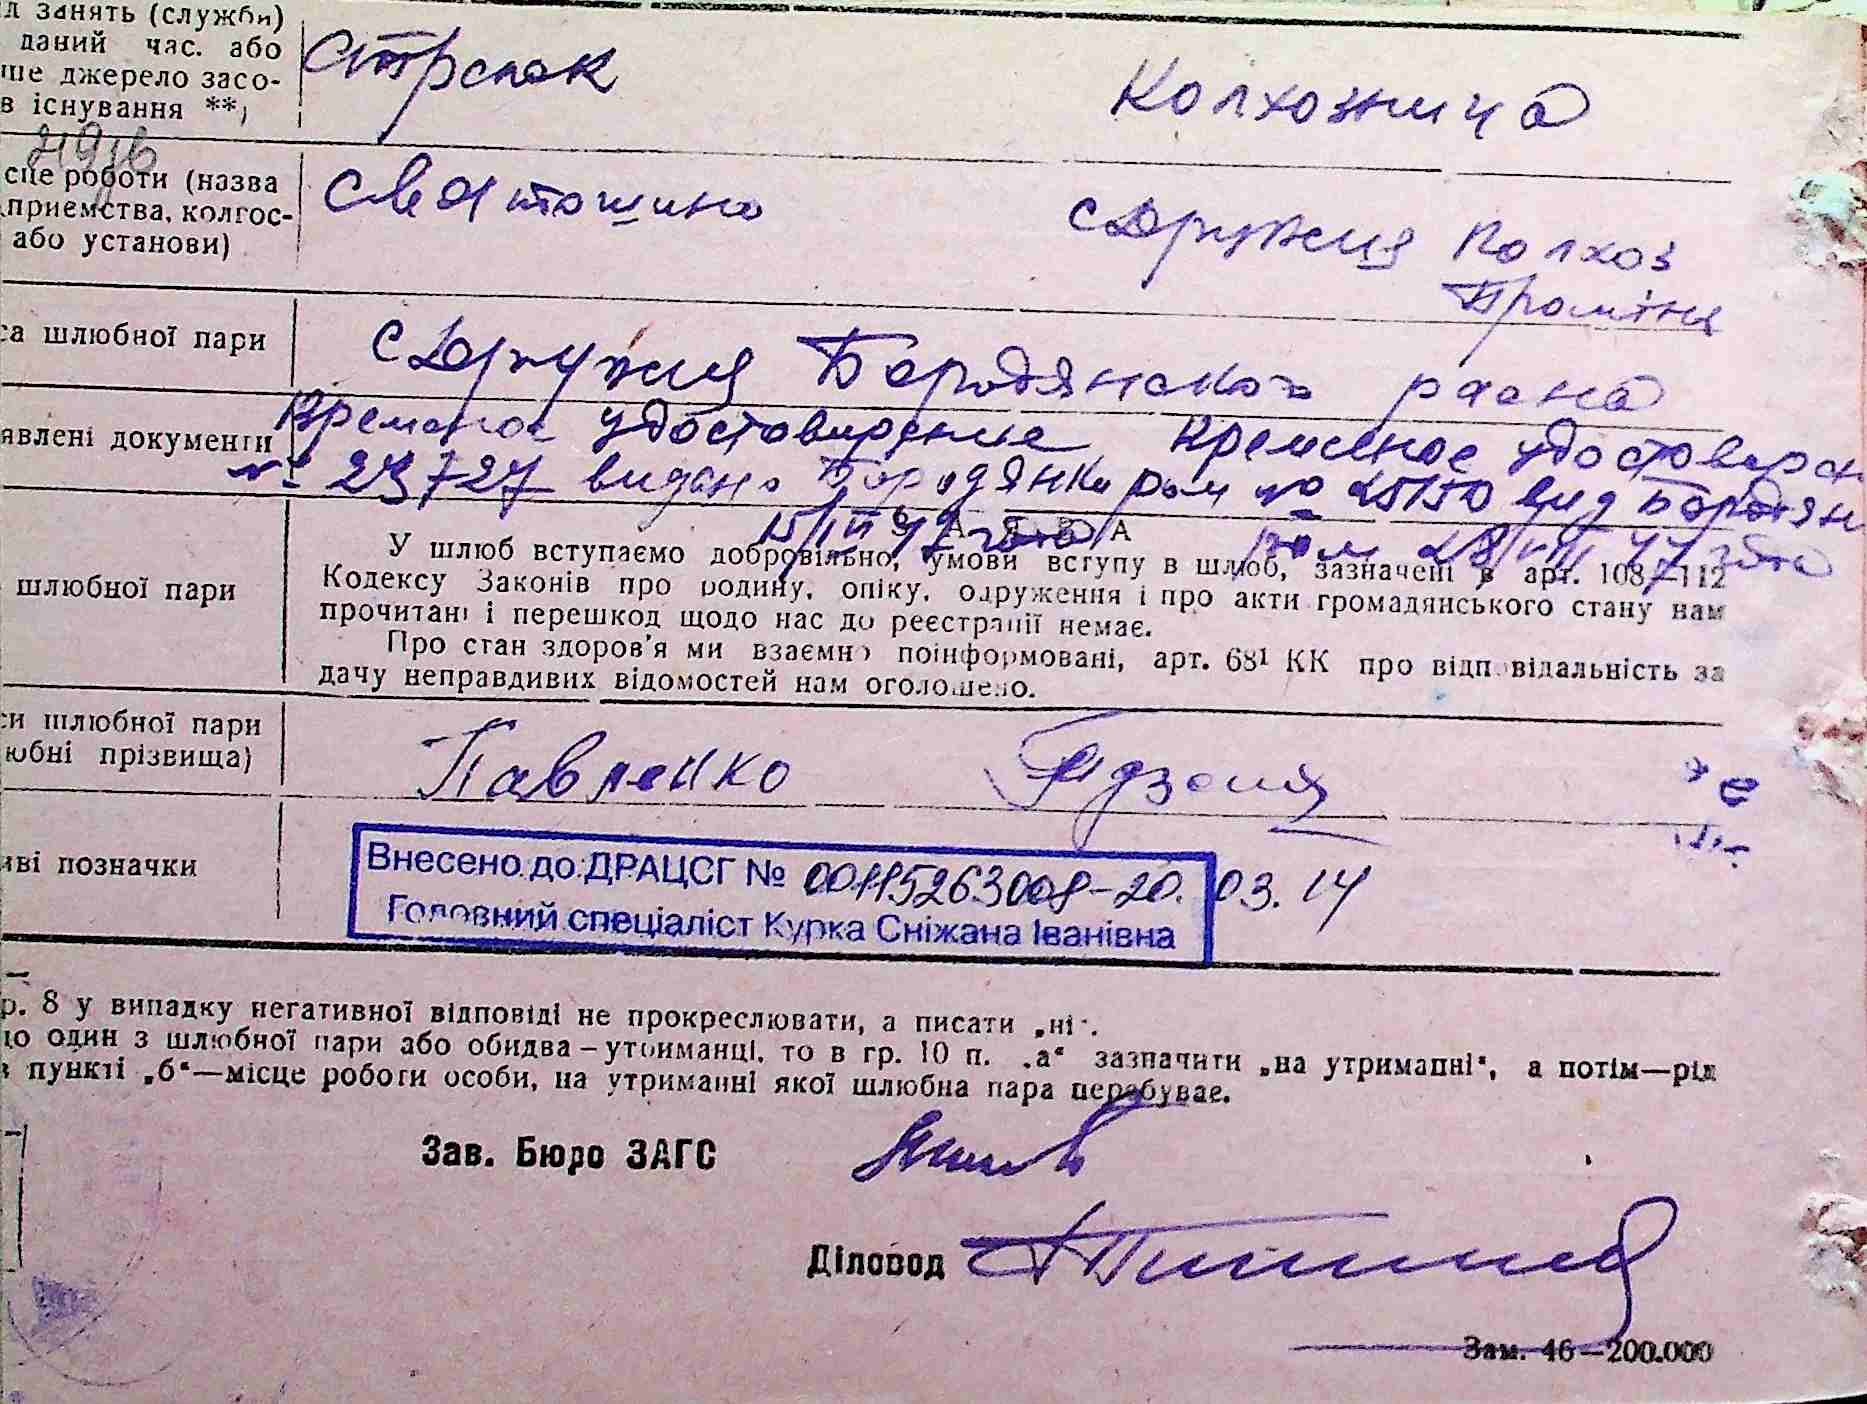 д занять (служби)
даний час. або
ше джерело засо-
в існування **)
Стрелок
Колхозница
сце роботи (назва
приємства, колгос-
або установи)
Святошино
с Дружня Колхоз
Промінь
са шлюбної пари
с Дружня Бородянского раена
явлені документи
Временое удостоверение Временое удостоверен
№ 23727 видано Бородянки ром № 25150 вид Бородян
15/III 47 года
ром 28/VIII 47 года
шлюбної пари
У шлюб вступаємо добровільно, умови вступу в шлюб, зазначені в арт. 108—112
Кодексу Законів про родину, опіку, одруження і про акти громадянського стану нам
прочитані і перешкод щодо нас до реєстрації немає.
Про стан здоров'я ми взаємно поінформовані, арт. 68¹ КК про відповідальність за
дачу неправдивих відомостей нам оголошено.
си шлюбної пари
юбні прізвища)
Павленко
иві позначки
Внесено до ДРАЦСГ № 00115263008-20.03.14
Головний спеціаліст Курка Сніжана Іванівна
р. 8 у випадку негативної відповіді не прокреслювати, а писати „ні".
що один з шлюбної пари або обидва – утриманці, то в гр. 10 п. „а" зазначити „на утриманні", а потім—рід
в пункті „б"—місце роботи особи, на утриманні якої шлюбна пара перебуває.
Зав. Бюро ЗАГС
Діловод
Зам. 46—200.000